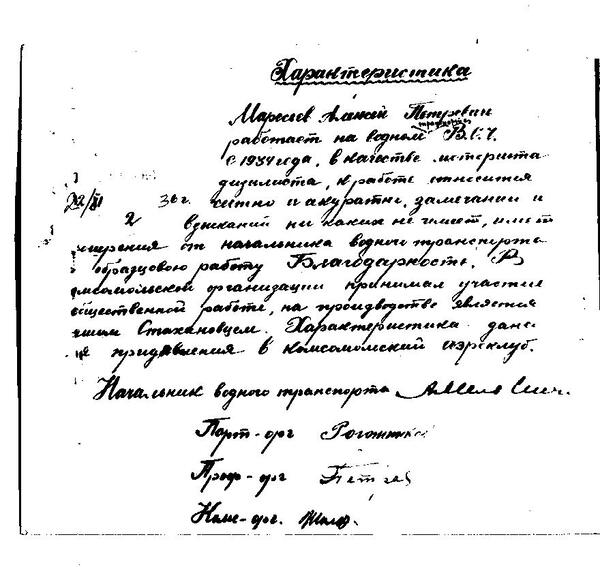 Характеристика
Маресьев Алексей Петрович
работает на водном В.С.Ч.
с 1934 года, в качестве моториста
дизилиста, к работе относится
22/XI 36 г. честно и акуратно, замечаний и
2 взысканий ни каких не имеет, имеет
ощрения от начальника водного транспорта
образцовою работу Благодарность. В
мсомольской организации принимал участие
общественной работе, на производстве является
чшим Стахановцем. Характеристика дана
для придявления в комсомолский аэроклуб.
Начальник водного транспорта
Парт-орг
Проф-орг Петров
Комс-орг.